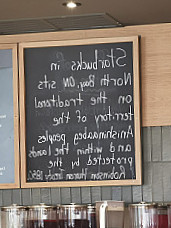 Starbucks in
North Bay, ON sits
on the traditional
territory of the
Anishinaabeg peoples
and within the lands
protected by the
Robinson Huron Treaty 1850